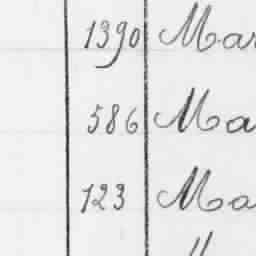 1390 Mar
586 Ma
123 Ma
"